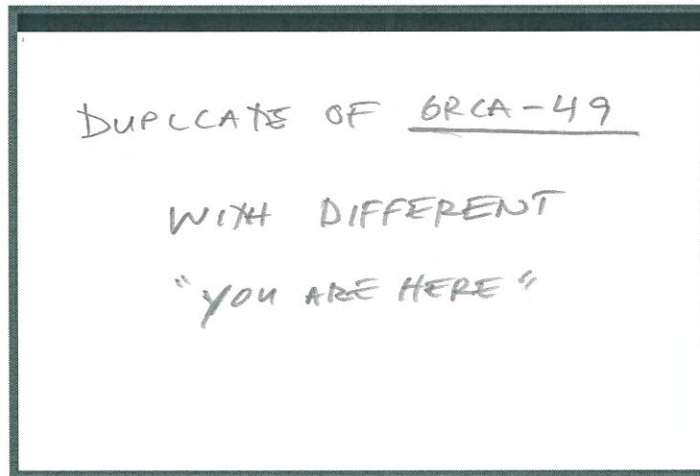 DUPLCATE OF GRCA-49
WITH DIFFERENT
"YOU ARE HERE"